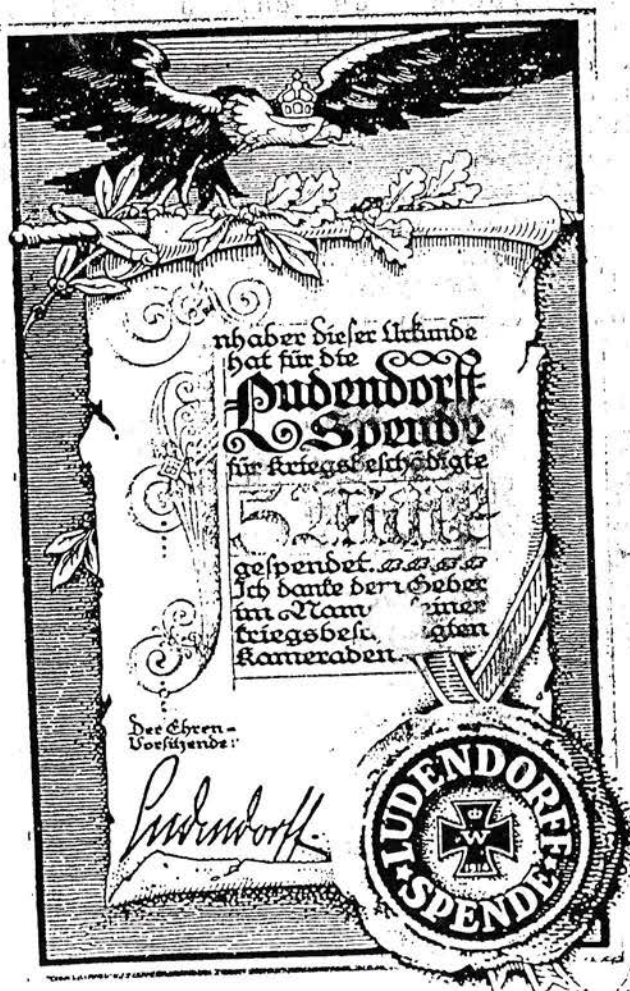 Inhaber dieser Urkunde
hat für die
Ludendorff-
Spende
für Kriegsbeschädigte
5 Mark
gespendet.
Ich danke dem Geber
im Namen seiner
kriegsbeschädigten
Kameraden.
Der Ehren-
Vorsitzende:
Ludendorff.
LUDENDORFF
SPENDE
W